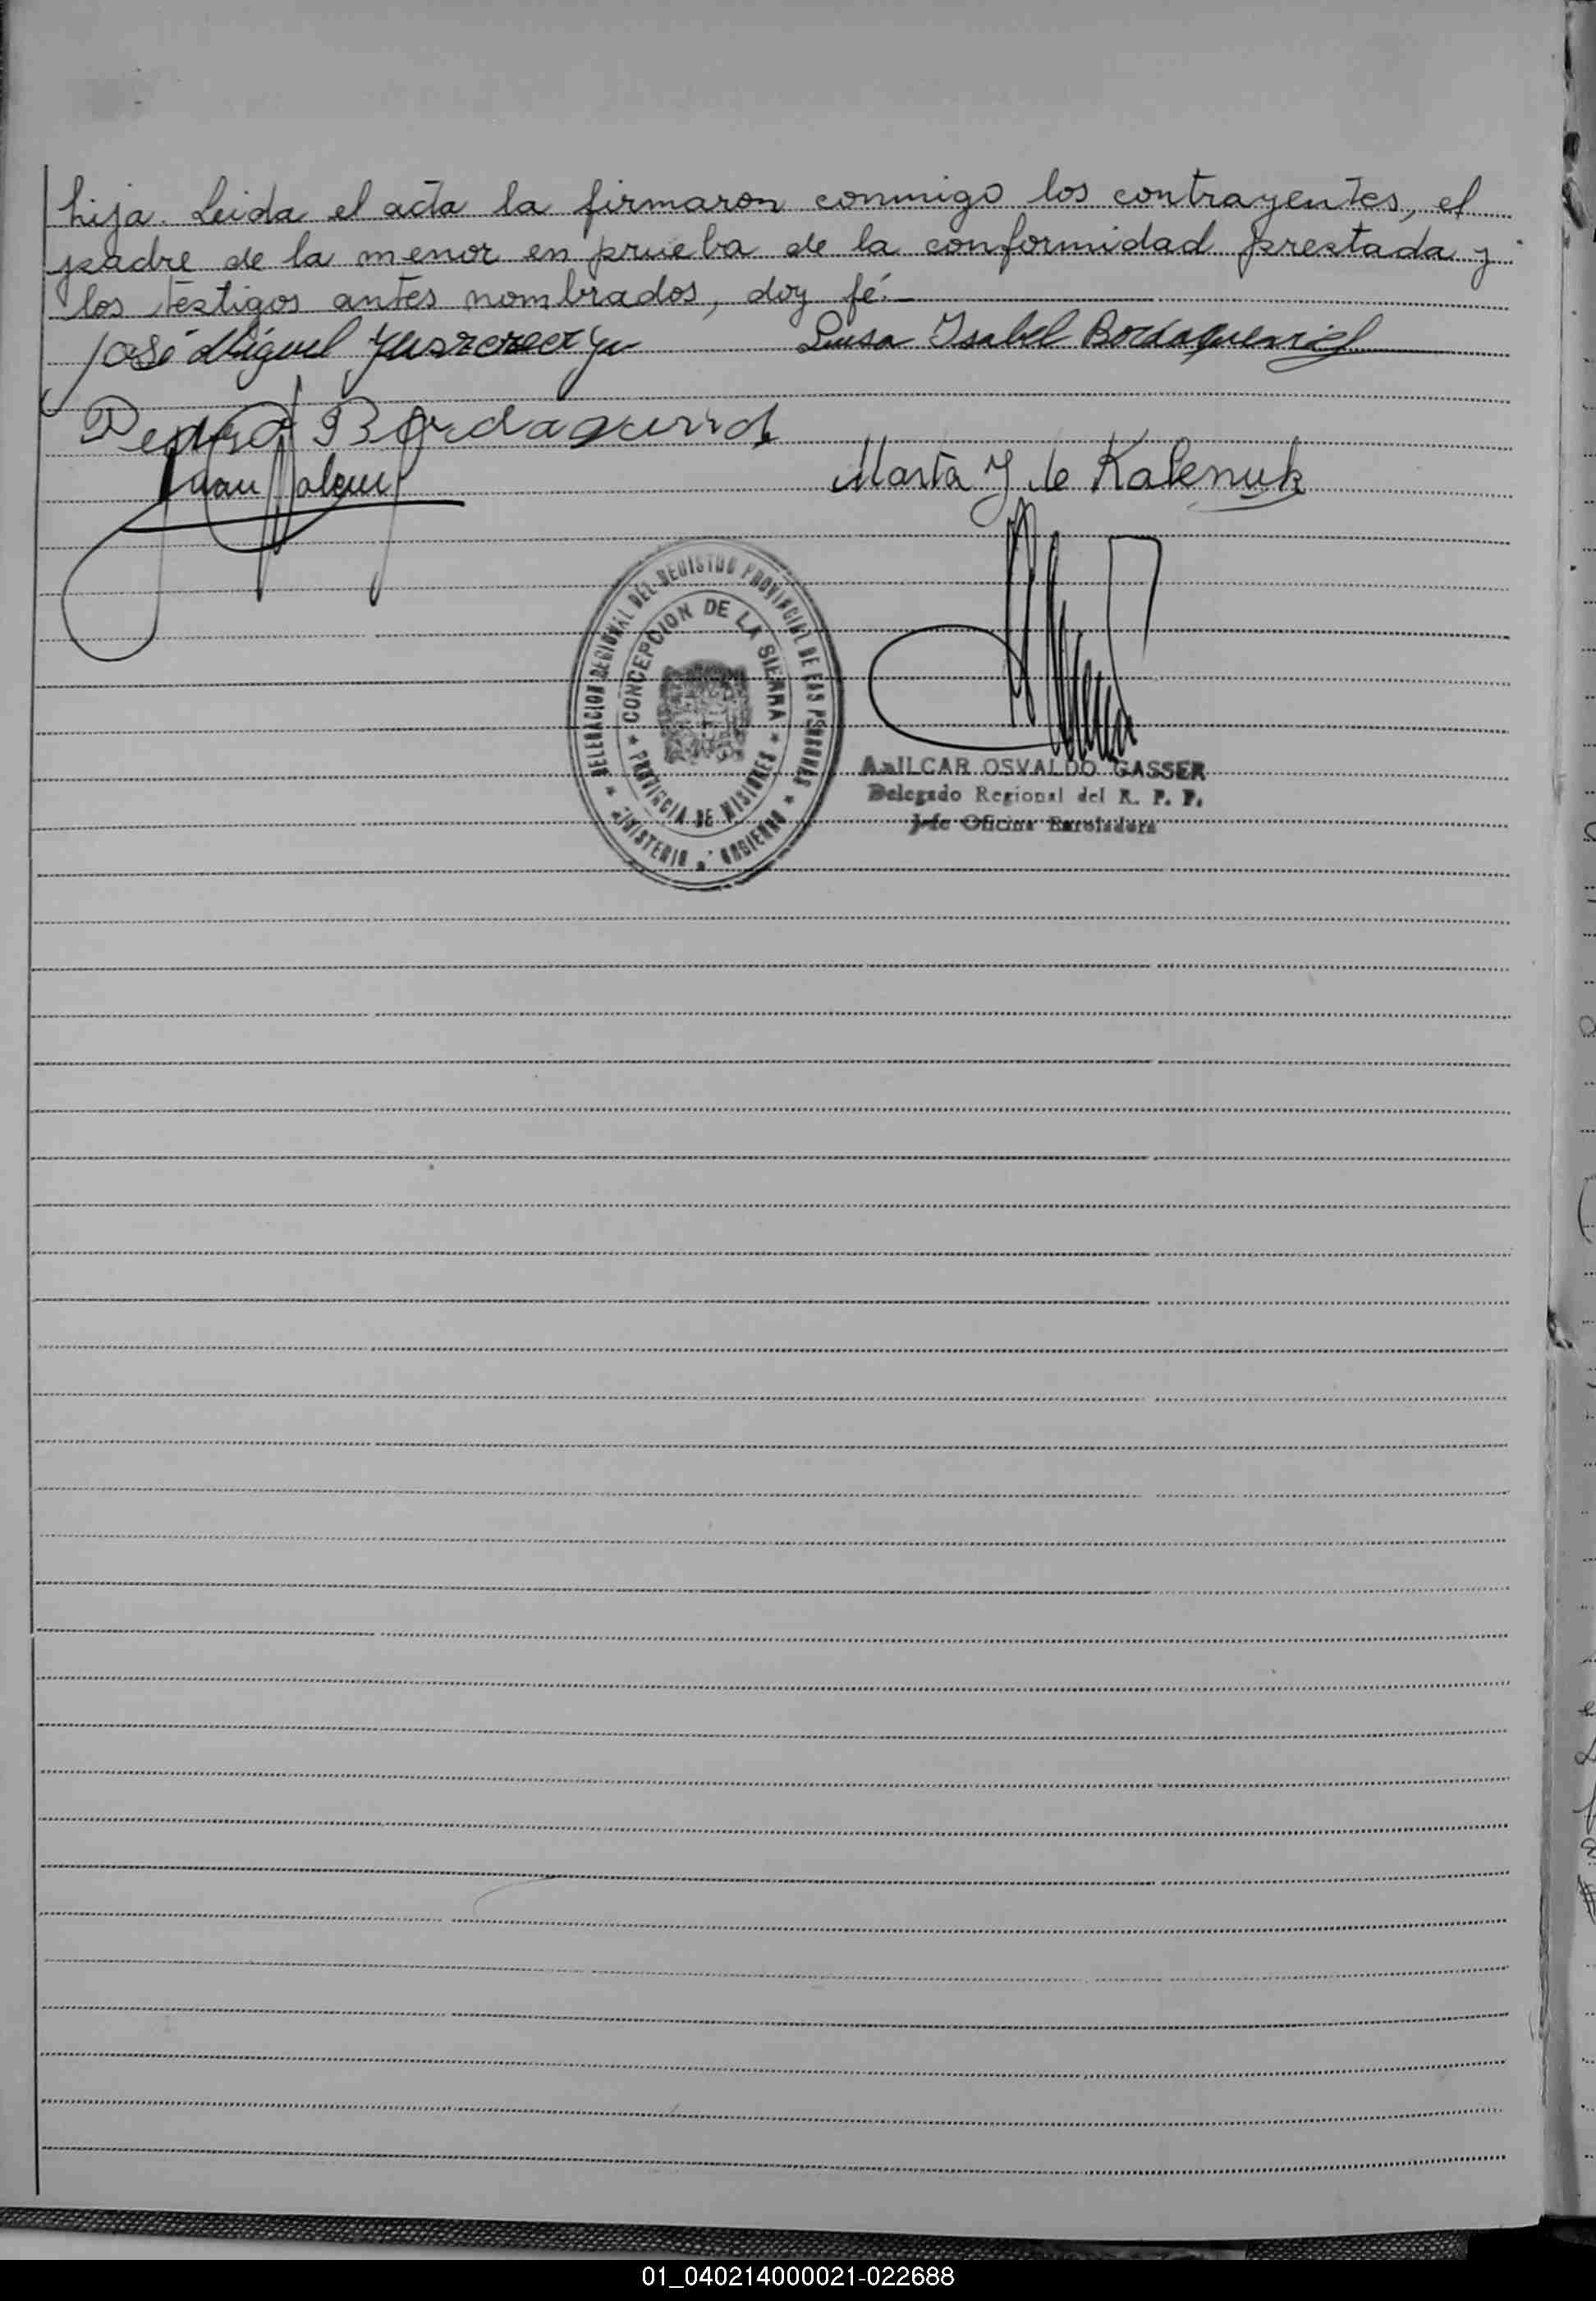 hija. Leida el acta la firmaron conmigo los contrayentes, el
padre de la menor en prueba de la conformidad prestada y
los testigos antes nombrados, doy fé.
José Miguel
Luisa Isabel
Pedro
Juan
Marta Y de Kalenuk
DELEGACION REGIONAL DEL REGISTRO PROVINCIAL DE LAS PERSONAS
CONCEPCION DE LA SIERRA
PROVINCIA DE MISIONES
MINISTERIO GOBIERNO
AMILCAR OSVALDO GASSER
Delegado Regional del R. P. P.
Jefe Oficina Enroladora
01_040214000021-022688